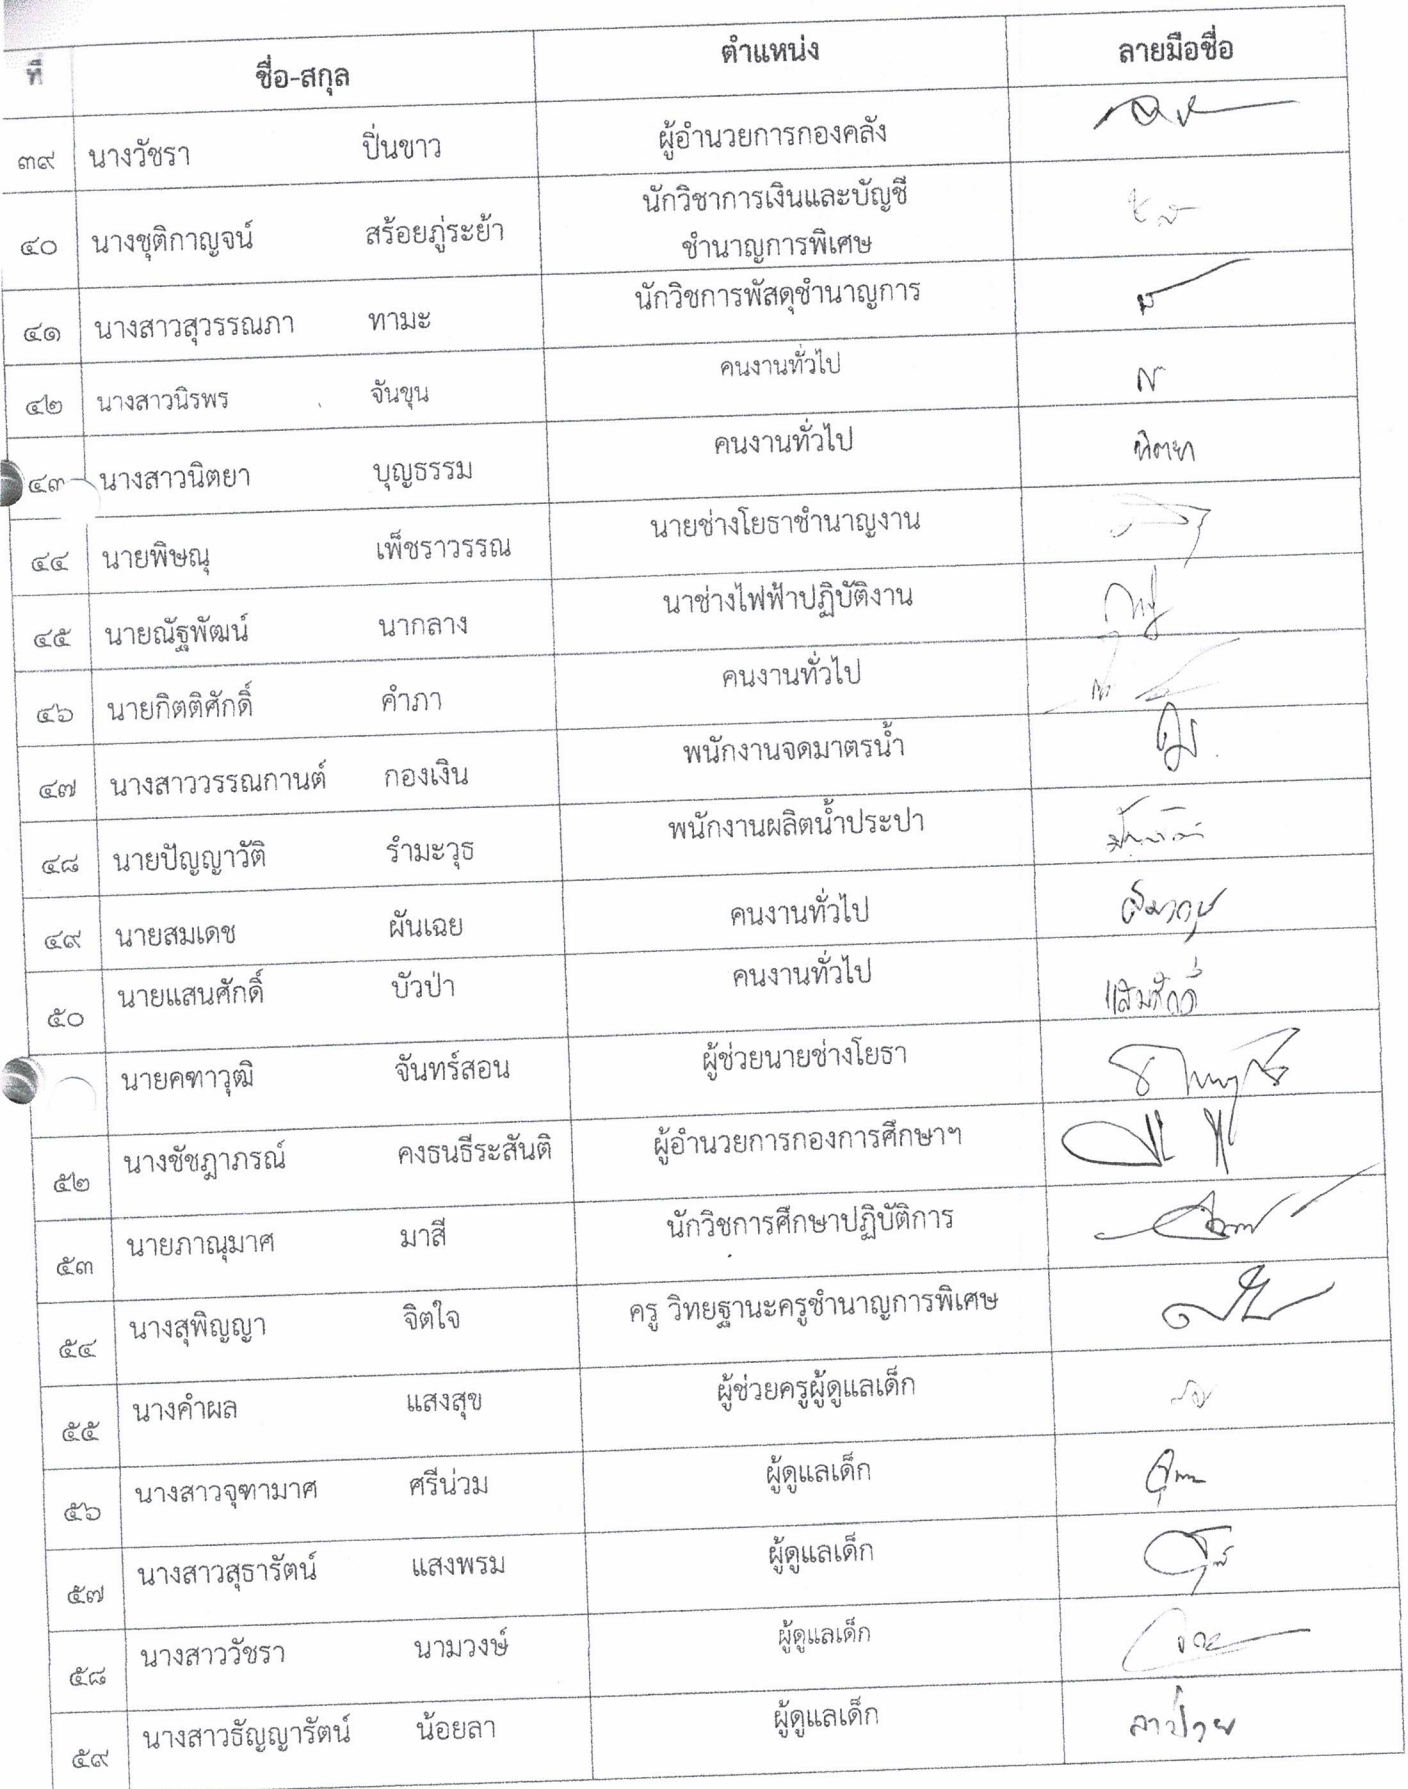 ที่ ชื่อ-สกุล ตำแหน่ง ลายมือชื่อ
๓๙ นางวัชรา ปิ่นขาว ผู้อำนวยการกองคลัง
๔๐ นางชุติกาญจน์ สร้อยภู่ระย้า นักวิชาการเงินและบัญชี
ชำนาญการพิเศษ
๔๑ นางสาวสุวรรณภา ทามะ นักวิชการพัสดุชำนาญการ
๔๒ นางสาวนิรพร จันขุน คนงานทั่วไป
๔๓ นางสาวนิตยา บุญธรรม คนงานทั่วไป นิตยา
๔๔ นายพิษณุ เพ็ชราวรรณ นายช่างโยธาชำนาญงาน
๔๕ นายณัฐพัฒน์ นากลาง นาช่างไฟฟ้าปฏิบัติงาน
๔๖ นายกิตติศักดิ์ คำภา คนงานทั่วไป
๔๗ นางสาววรรณกานต์ กองเงิน พนักงานจดมาตรน้ำ
๔๘ นายปัญญาวัติ รำมะวุธ พนักงานผลิตน้ำประปา
๔๙ นายสมเดช ผันเฉย คนงานทั่วไป
๕๐ นายแสนศักดิ์ บัวป่า คนงานทั่วไป แสนศักดิ์
นายคฑาวุฒิ จันทร์สอน ผู้ช่วยนายช่างโยธา
๕๒ นางชัชฎาภรณ์ คงธนธีระสันติ ผู้อำนวยการกองการศึกษาฯ
๕๓ นายภาณุมาศ มาสี นักวิชการศึกษาปฏิบัติการ
๕๔ นางสุพิญญา จิตใจ ครู วิทยฐานะครูชำนาญการพิเศษ
๕๕ นางคำผล แสงสุข ผู้ช่วยครูผู้ดูแลเด็ก
๕๖ นางสาวจุฑามาศ ศรีน่วม ผู้ดูแลเด็ก
๕๗ นางสาวสุธารัตน์ แสงพรม ผู้ดูแลเด็ก
๕๘ นางสาววัชรา นามวงษ์ ผู้ดูแลเด็ก
๕๙ นางสาวธัญญารัตน์ น้อยลา ผู้ดูแลเด็ก